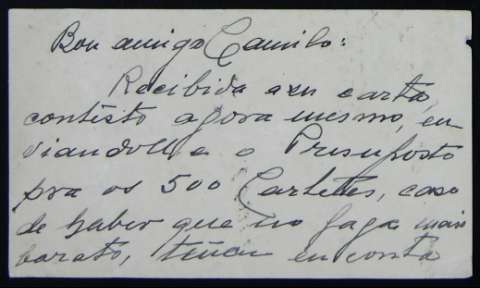 Bon amigo Camilo:
Recibida a su carta,
contesto agora mesmo, en
viandolle o Presuposto
pra os 500 Carteles, caso
de haber que no faga mais
barato, teñan en conta